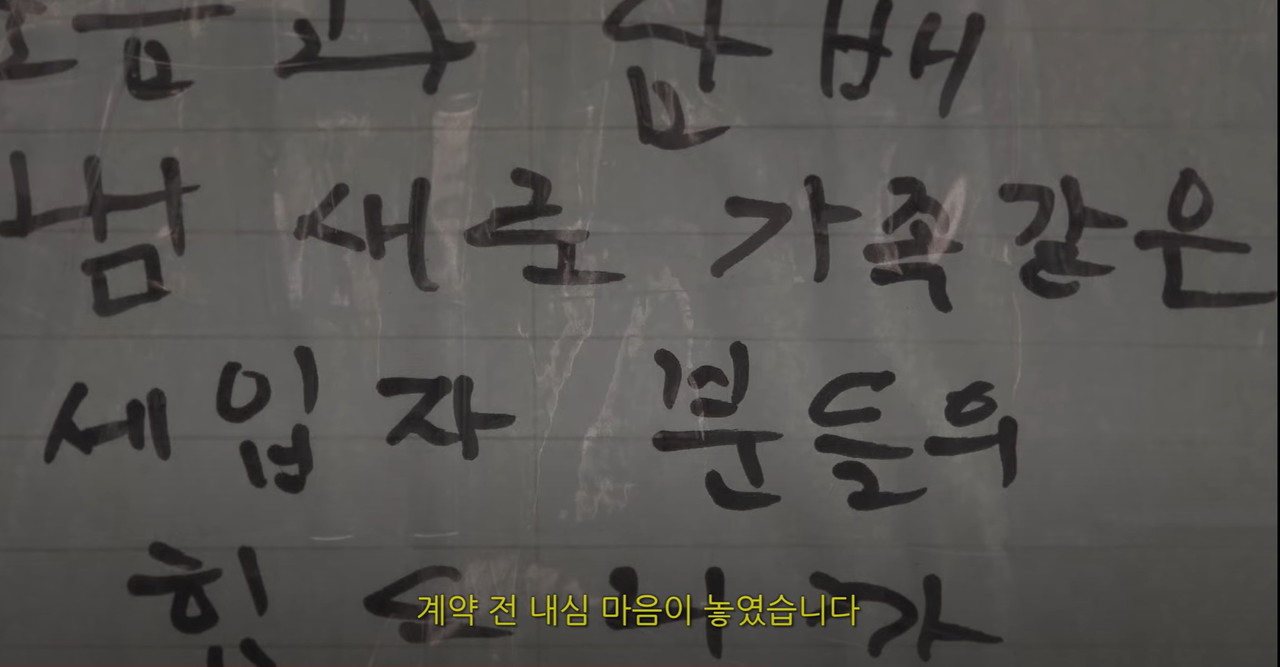 과 담배
냄 새로 가족같은
세입자 분들의
힘
계약 전 내심 마음이 놓였습니다